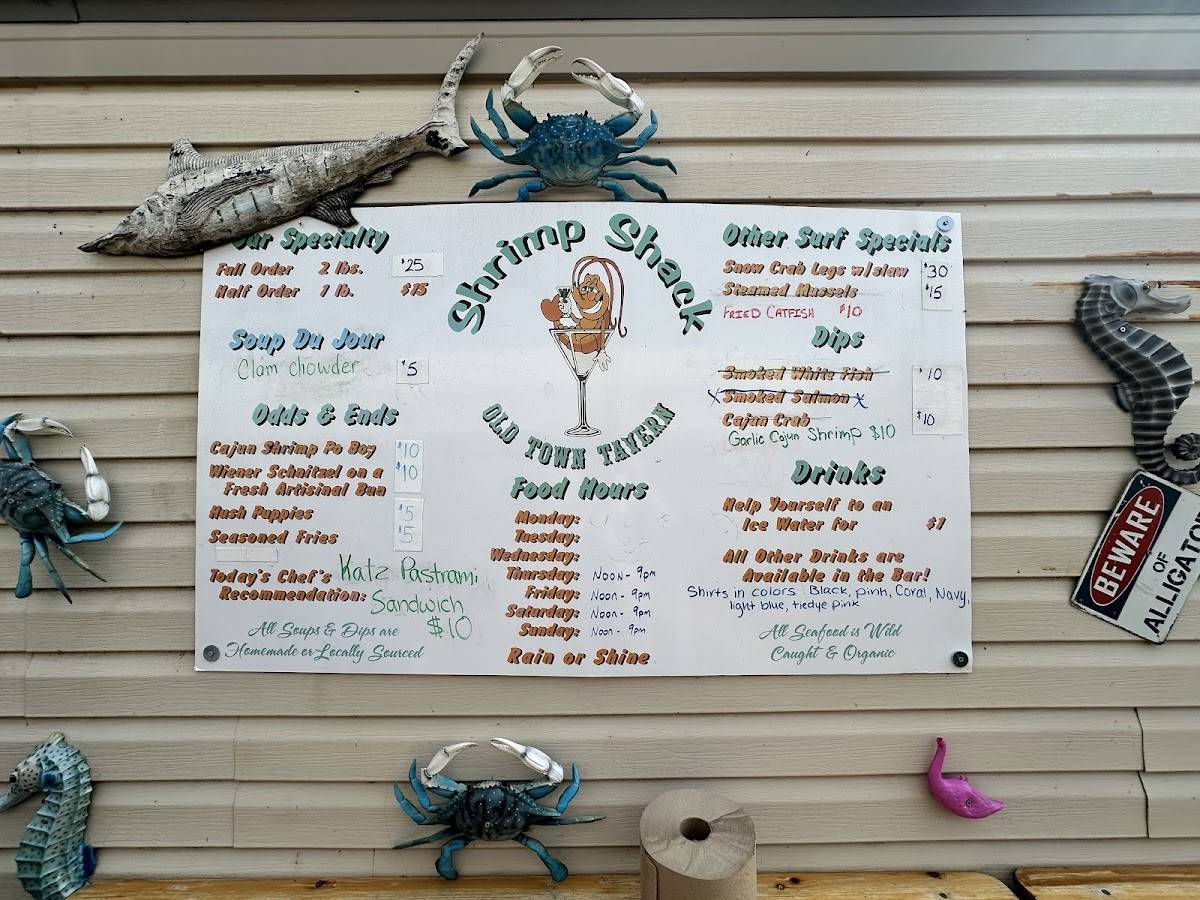 Our Specialty
Full Order 2 lbs. $25
Half Order 1 lb. $15
Soup Du Jour
Clam Chowder $5
Odds & Ends
Cajun Shrimp Po Boy $10
Wiener Schnitzel on a $10
Fresh Artisinal Bun
Hush Puppies $5
Seasoned Fries $5
Today's Chef's Katz Pastrami
Recommendation: Sandwich
$10
All Soups & Dips are
Homemade or Locally Sourced
Shrimp Shack
OLD TOWN TAVERN
Food Hours
Monday:
Tuesday:
Wednesday:
Thursday: Noon - 9pm
Friday: Noon - 9pm
Saturday: Noon - 9pm
Sunday: Noon - 9pm
Rain or Shine
Other Surf Specials
Snow Crab Legs w/slaw $30
Steamed Mussels $15
FRIED CATFISH $10
Dips
Smoked White Fish $10
X Smoked Salmon X
Cajun Crab $10
Garlic Cajun Shrimp $10
Drinks
Help Yourself to an
Ice Water for $1
All Other Drinks are
Available in the Bar!
Shirts in colors: Black, pink, Coral, Navy,
light blue, tiedye pink
All Seafood is Wild
Caught & Organic
BEWARE
OF
ALLIGATOR